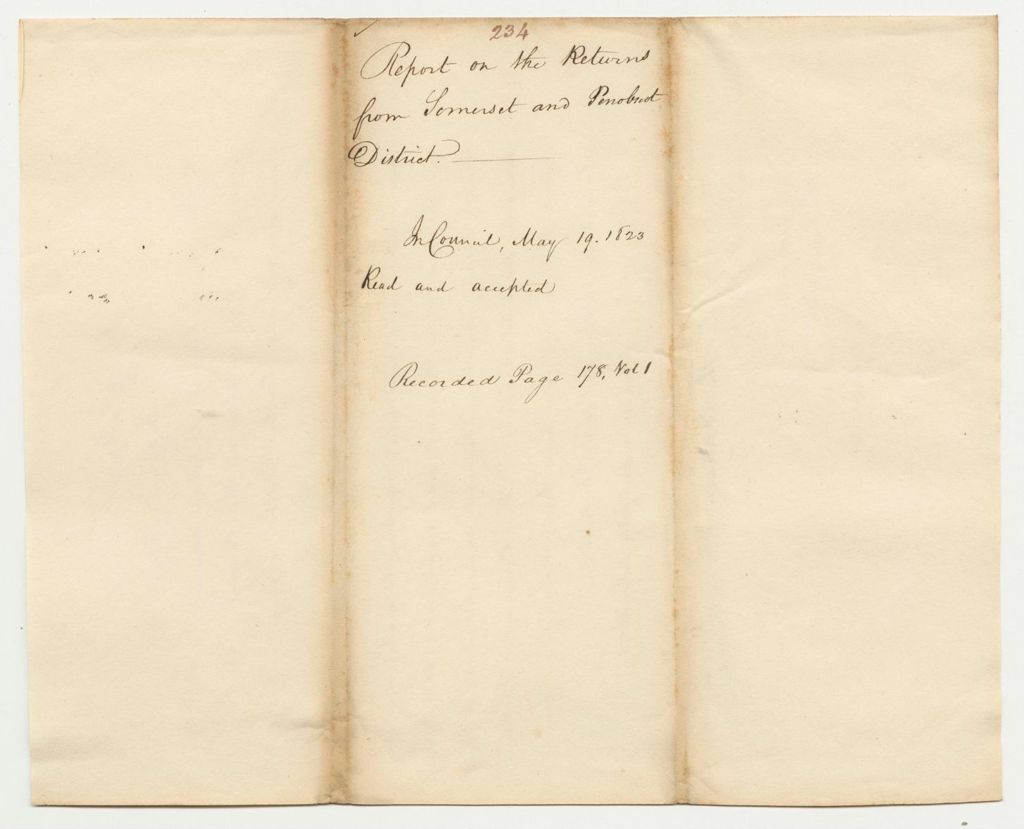 234
Report on the Returns
from Somerset and Penobscot
District.
In Council, May 19. 1823
Read and accepted
Recorded Page 178, Vol 1